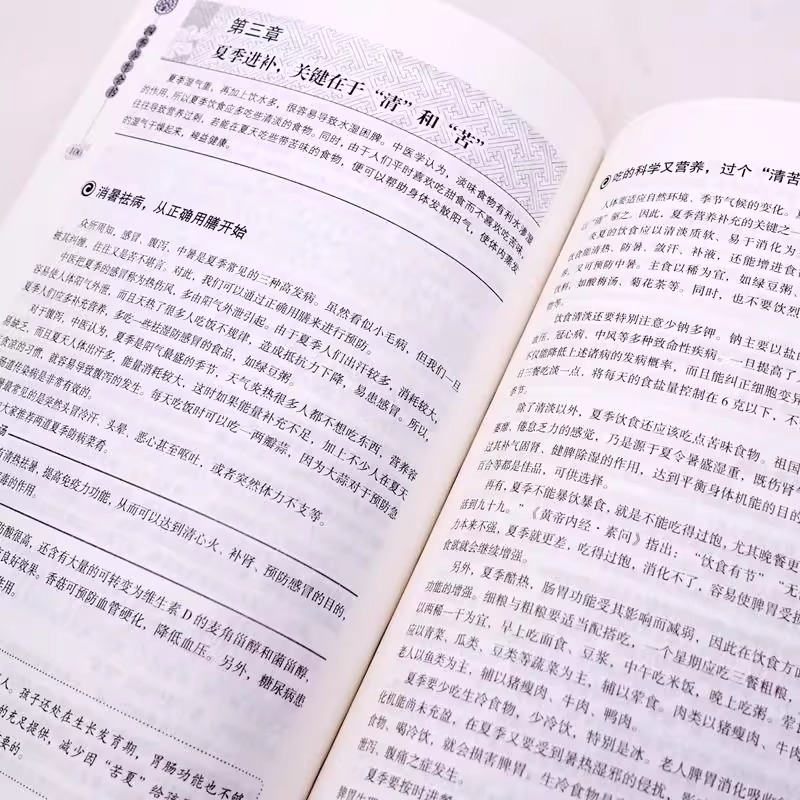 四季养生全书
100
第三章
夏季进补，关键在于“清”和“苦”
夏季湿气重，再加上饮水多，很容易导致水湿困脾。中医学认为，淡味食物有利水渗湿
的作用，所以夏季饮食应多吃些清淡的食物。同时，由于人们平时喜欢吃甜食而不喜欢吃苦味，
往往导致营养过剩，若能在夏天吃些带苦味的食物，便可以帮助身体发散阳气，使体内蒸发
的湿气干燥起来，裨益健康。
消暑祛病，从正确用膳开始
众所周知，感冒、腹泻、中暑是夏季常见的三种高发病。虽然看似小毛病，但我们一旦
被其纠缠，往往又是苦不堪言。对此，我们可以通过正确用膳来进行预防。
中医把夏季的感冒称为热伤风，多由阳气外泄引起。由于夏季人们出汗较多，消耗较大，
容易使人体阳气外泄，而且天热了很多人吃饭不规律，造成抵抗力下降，易患感冒。所以，
夏季人们应多补充营养，多吃一些祛湿防感冒的食品，如绿豆粥。
对于腹泻，中医认为，夏季是阳气最盛的季节，天气炎热很多人都不想吃东西，营养容
易缺乏，而且夏天人体出汗多，能量消耗较大，这时如果能量补充不足，加上不少人在夏天
贪凉的习惯，就容易导致腹泻的发生。每天吃饭时可以吃一两瓣蒜，因为大蒜对于预防急
肠道传染病是非常有效的。
最常见的是突然头冒冷汗、头晕、恶心甚至呕吐，或者突然体力不支等。
大家推荐两道夏季防病菜肴。
汤
有清热祛暑、提高免疫力功能，从而可以达到清心火、补肾、预防感冒的目的，
毒的作用。
肪酸很高，还含有大量的可转变为维生素 D 的麦角甾醇和菌甾醇，
有良好效果。香菇可预防血管硬化，降低血压。另外，糖尿病患
人。孩子还处在生长发育期，胃肠功能也不够
的充足提供，减少因“苦夏”给孩
要的。
吃的科学又营养，过个“清苦
人体要适应自然环境、季节气候的变化。
以“清”驱之。因此，夏季营养补充的关键之一
炎夏的饮食应以清淡质软、易于消化为
饮食能清热、防暑、敛汗、补液，还能增进食
多，又可预防中暑。主食以稀为宜，如绿豆粥、
饮料，如酸梅汤、菊花茶等。同时，也不要饮烈
等。
饮食清淡还要特别注意少钠多钾。钠主要以盐
血压、冠心病、中风等多种致命性疾病。一旦提高了
不仅能降低上述诸病的发病概率，而且能纠正细胞变异
日三餐吃淡一点，将每天的食盐量控制在 6 克以下，不
季节。
除了清淡以外，夏季饮食还应该吃点苦味食物。祖国
萎靡、倦怠乏力的感觉，乃是源于夏令暑盛湿重，既伤肾气
过其补气固肾、健脾除湿的作用，达到平衡身体机能的目的
百合等都是佳品，可供选择。
再有，夏季不能暴饮暴食，就是不能吃得过饱，尤其晚餐更
活到九十九。”《黄帝内经·素问》指出：“饮食有节”“无
力本来不强，夏季就更差，吃得过饱，消化不了，容易使脾胃受损
食欲就会继续增强。
另外，夏季酷热，肠胃功能受其影响而减弱，因此在饮食方面
功能的增强。细粮与粗粮要适当配搭吃，一个星期应吃三餐粗粮，
以两稀一干为宜，早上吃面食、豆浆，中午吃米饭，晚上吃粥。荤
应以青菜、瓜类、豆类等蔬菜为主，辅以荤食。肉类以猪瘦肉、牛肉
老人以鱼类为主，辅以猪瘦肉、牛肉、鸭肉。
夏季要少吃生冷食物，少冷饮，特别是冰。老人脾胃消化吸收的
化机能尚未充盈，在夏季又要受到暑热湿邪的侵扰，影
食物、喝冷饮，就会损害脾胃。生冷食物是
泄泻、腹痛之症发生。
夏季要按时进餐